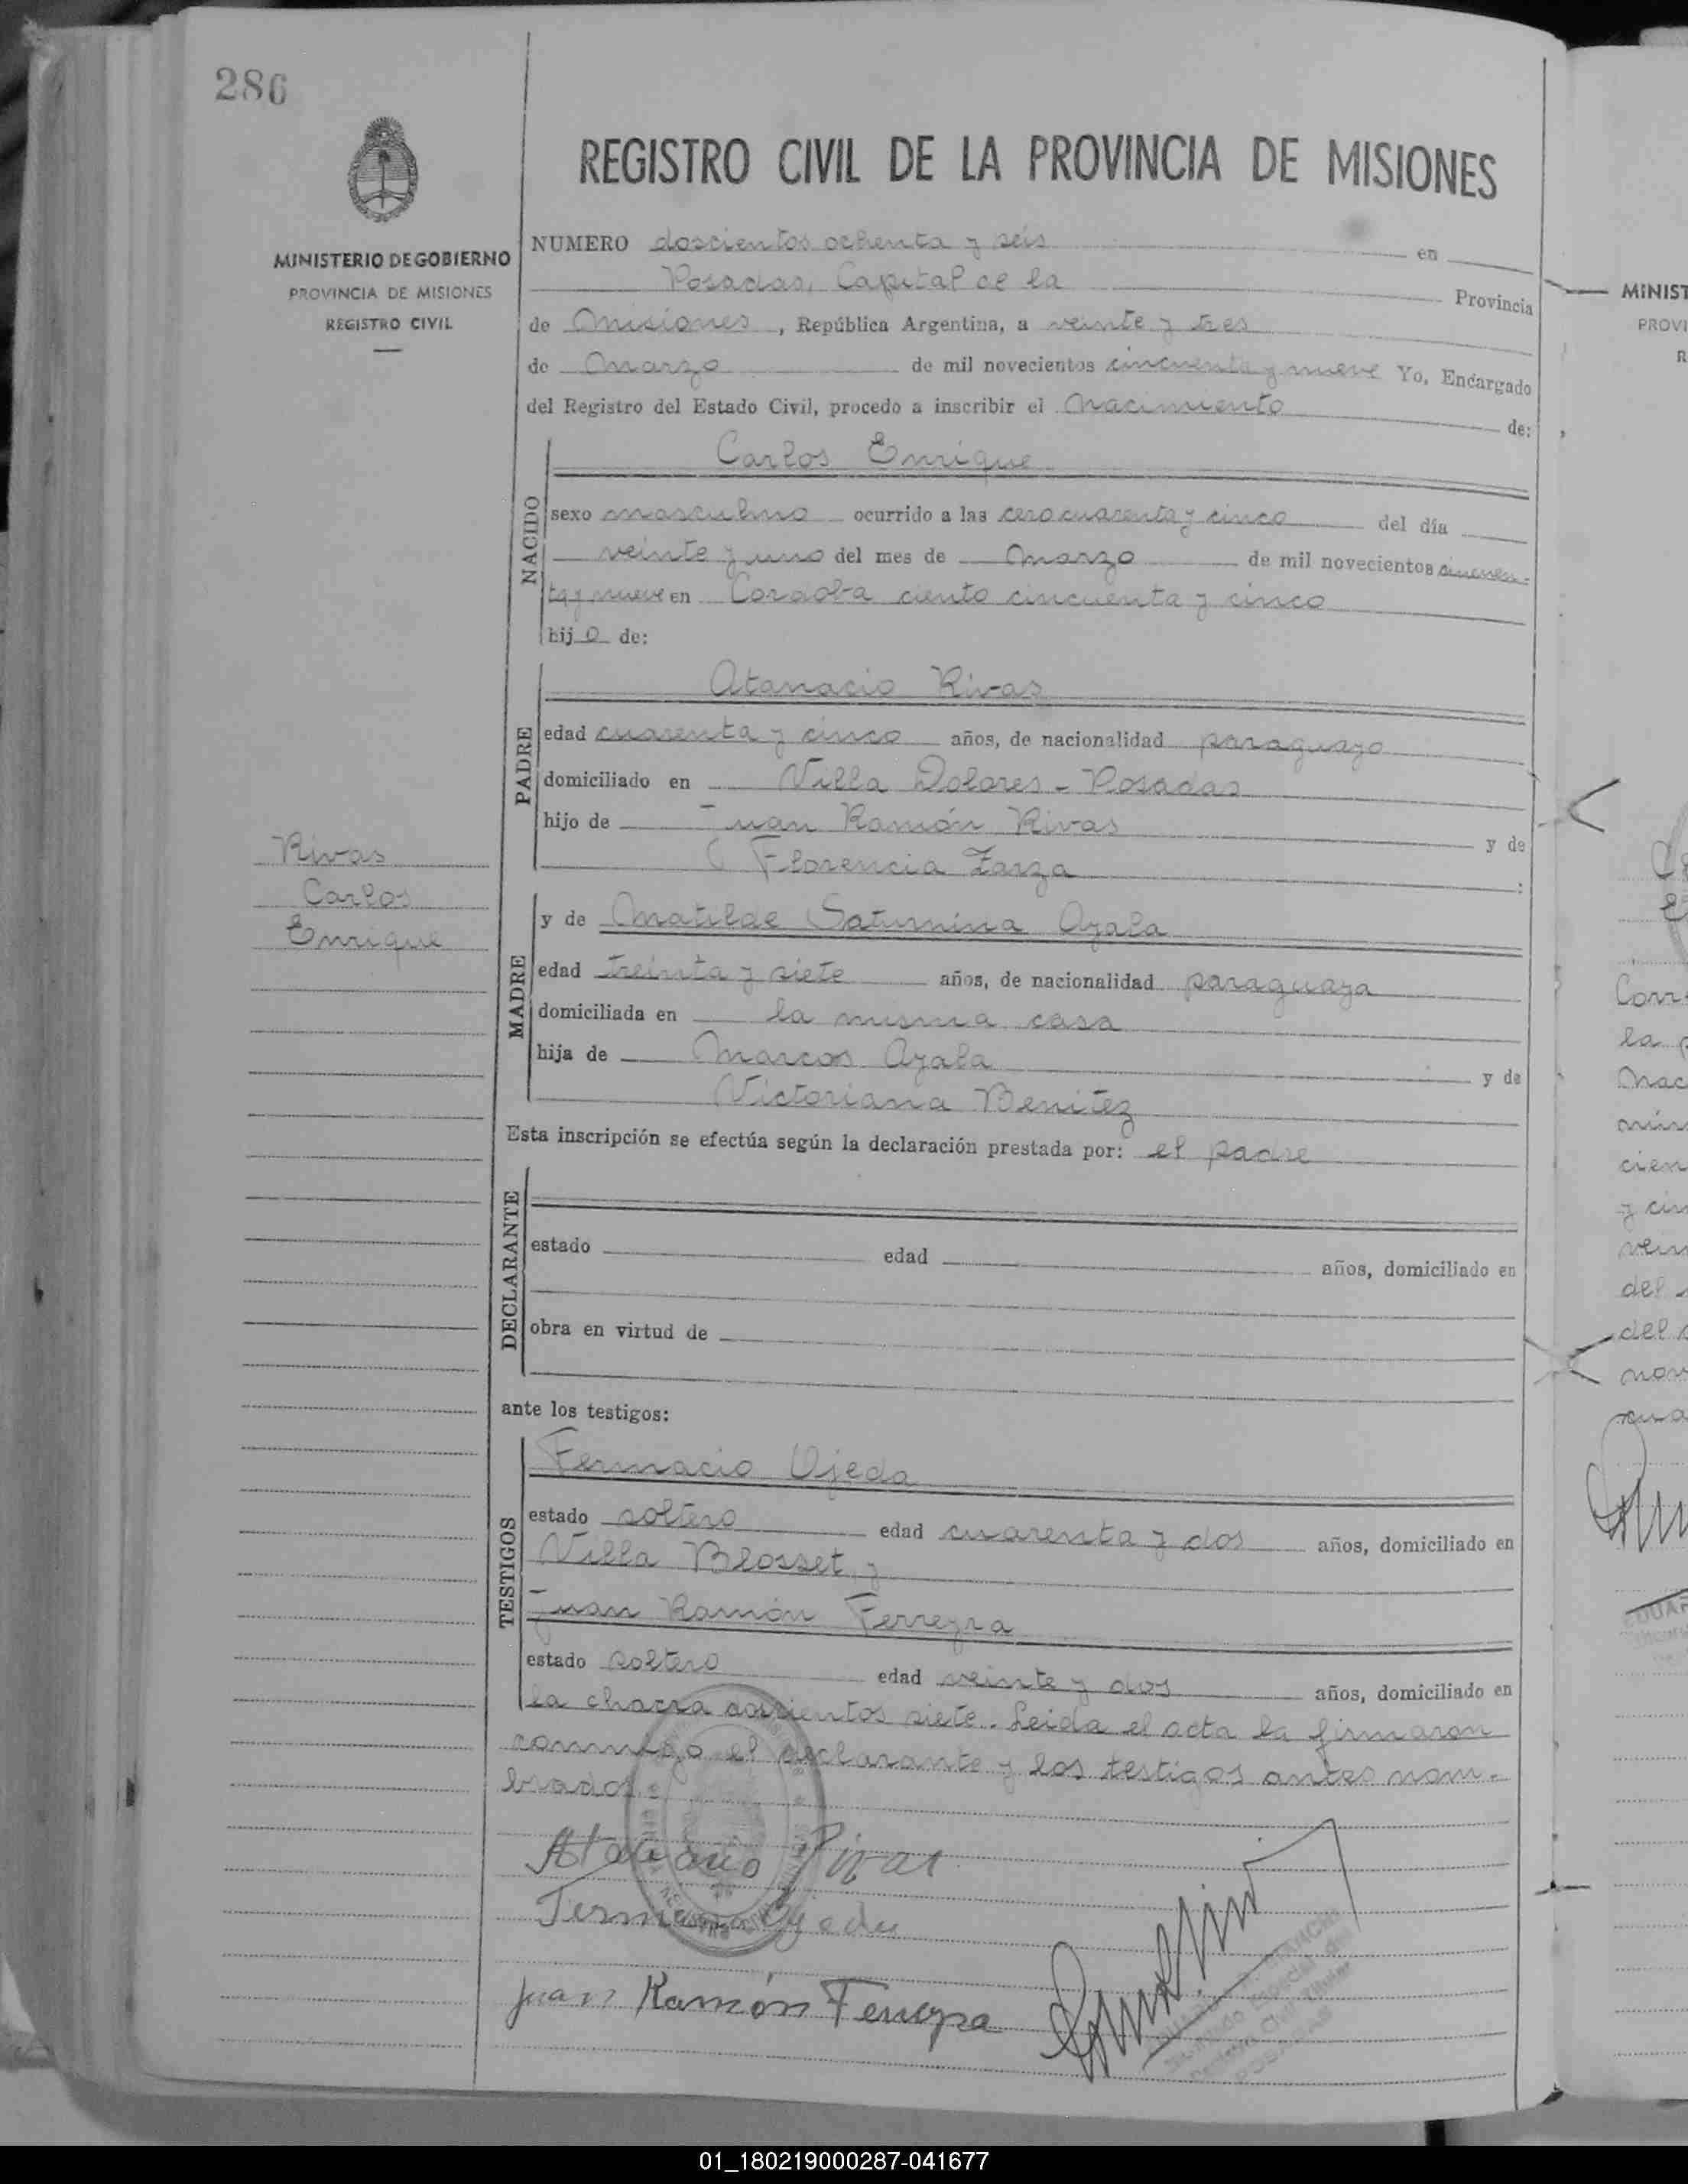 286
REGISTRO CIVIL DE LA PROVINCIA DE MISIONES
MINISTERIO DE GOBIERNO
PROVINCIA DE MISIONES
REGISTRO CIVIL
NUMERO doscientos ochenta y seis en
Posadas, Capital de la Provincia
de Misiones, República Argentina, a veinte y tres
de Marzo de mil novecientos cincuenta y nueve Yo, Encargado
del Registro del Estado Civil, procedo a inscribir el Nacimiento de:
NACIDO
Carlos Enrique
sexo masculino ocurrido a las cero cuarenta y cinco del día
veinte y uno del mes de Marzo de mil novecientos cincuen-
ta y nueve en Cordoba ciento cincuenta y cinco
hijo de:
PADRE
Atanacio Rivas
edad cuarenta y cinco años, de nacionalidad paraguayo
domiciliado en Villa Dolores - Posadas
hijo de Juan Ramón Rivas y de
Florencia Zarza :
Rivas
Carlos
Enrique
MADRE
y de Matilde Saturnina Ayala
edad treinta y siete años, de nacionalidad paraguaya
domiciliada en la misma casa
hija de Marcos Ayala y de
Victoriana Benitez
Esta inscripción se efectúa según la declaración prestada por: el padre
DECLARANTE
estado edad años, domiciliado en
obra en virtud de
ante los testigos:
TESTIGOS
Fermacio Ojeda
estado soltero edad cuarenta y dos años, domiciliado en
Villa Blosset, y
Juan Ramón Ferreyra
estado soltero edad veinte y dos años, domiciliado en
la chacra doscientos siete. Leida el acta la firmaron
conmigo el declarante y los testigos antes nom-
brados.
Atanacio Rivas
Ojeda
Juan Ramón Ferreyra
MINIST
PROVI
R
la
del
del
01_180219000287-041677